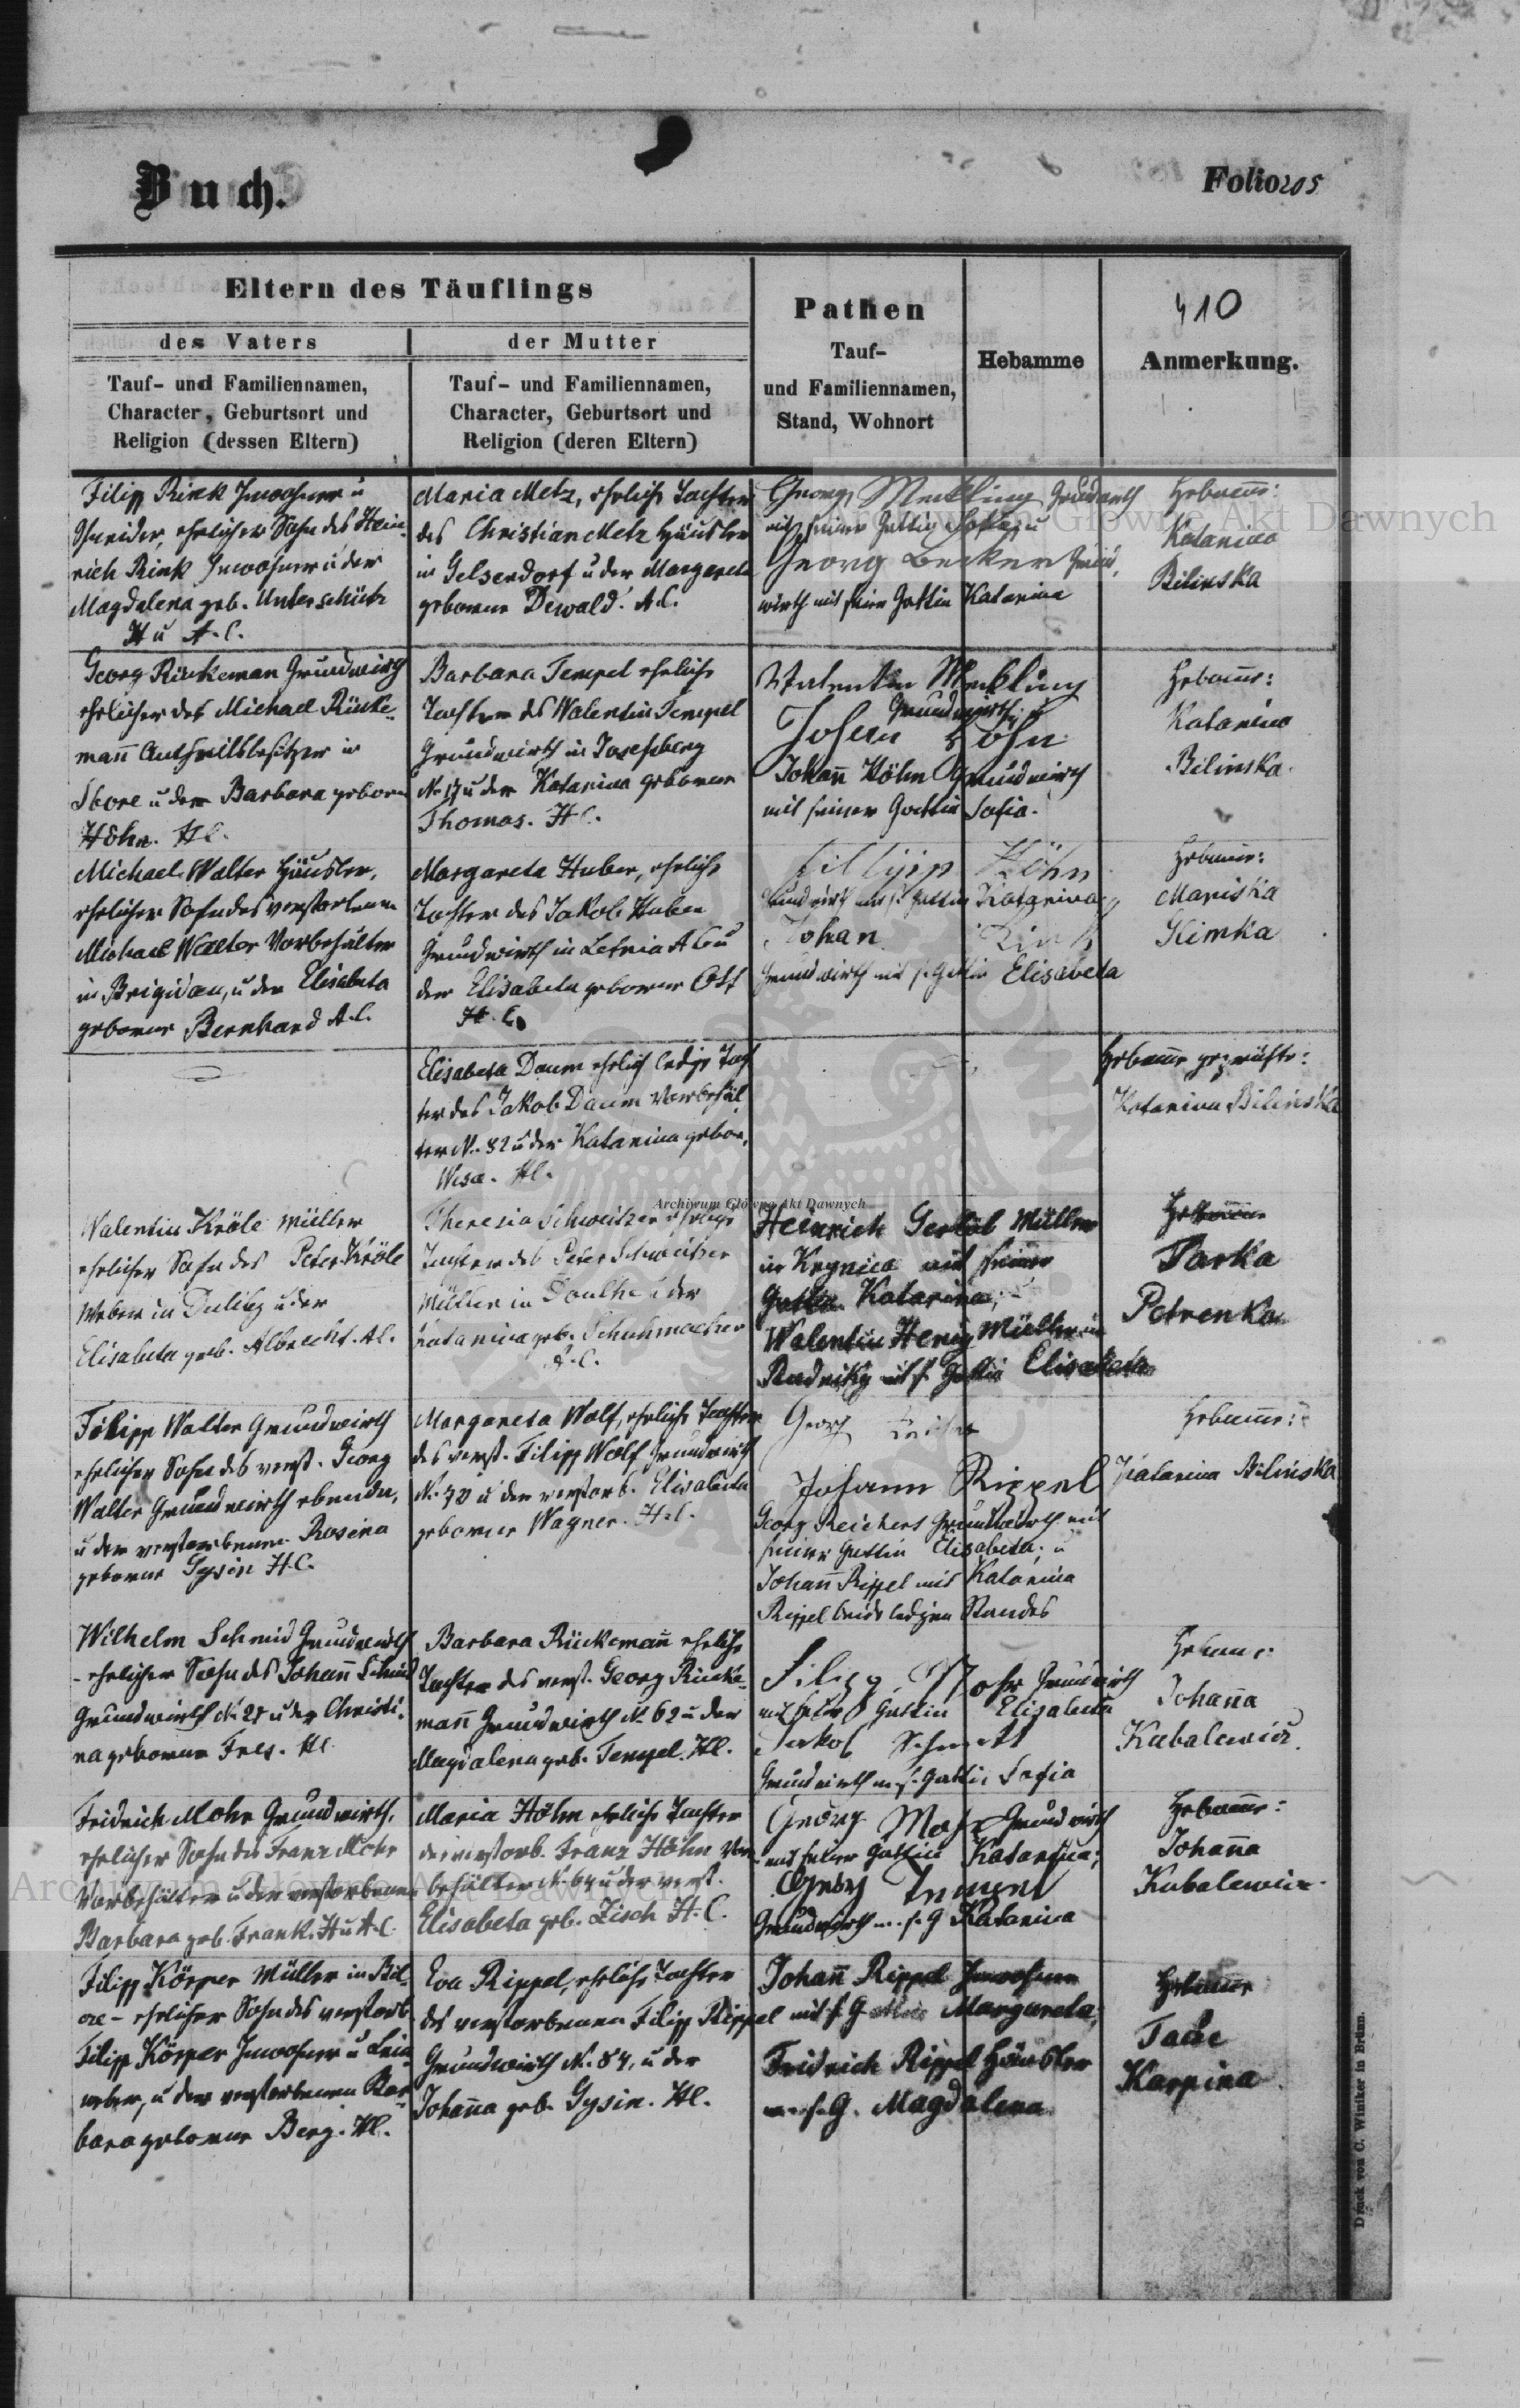 Buch.
Folio 205
Eltern des Täuflings
des Vaters
der Mutter
Tauf- und Familiennamen,
Character, Geburtsort und
Religion (dessen Eltern)
Tauf- und Familiennamen,
Character, Geburtsort und
Religion (deren Eltern)
Pathen
Tauf-
und Familiennamen,
Stand, Wohnort
Hebamme
410
Anmerkung.
Filipp Rink Inwohner u
Schneider, ehelicher Sohn des Hein-
rich Rink Inwohner u der
Magdalena geb. Unterschütz
H u A.C.
Maria Metz, ehliche Tochter
des Christian Metz Häusler
in Gelsendorf u der Margareta
geborene Dewald. A.C.
Georg Meckling Grundwirth
mit seiner Gattin Sofia, u
Georg Becker Grund,
wirth mit seiner Gattin Katarina
Hebamme:
Katarina
Bilinska
Georg Rückeman Grundwirth
ehelicher des Michael Rücke-
mann Antheilsbesitzer in
u der Barbara gebor
Höhn. HC.
Barbara Tempel ehliche
Tochter des Valentin Tempel
Grundwirth in Josefsberg
No 17 u der Katarina geborne
Thomas. HC.
Valentin Meckling
Grundwirth u
Johan Höhn
Johann Höhn Grundwirth
mit seiner Gattin Sofia.
Hebamme:
Katarina
Bilinska.
Michael Walter Häusler,
ehelicher Sohn des verstorbenen
Michael Walter Vorbehälter
in Brigidau, u der Elisabeta
geborne Bernhard A.C.
Margareta Huber, ehliche
Tochter des Jakob Huber
Grundwirth in Letnia AC u
der Elisabeta geborne Ott
H.C.
Fillipp Höhn
Grundwirth mit s. Gattin Katarina
Johan Rink
Grundwirth mit s. Gattin Elisabeta
Hebamme:
Mariska
Slimka
Elisabeta Daum ehelich ledige Toch
ter des Jakob Daum Vorbehäl
ter N. 82 u der Katarina gebor,
HC.
Hebamme geprüfte:
Katarina Bilinska
Valentin Kröle Müller
ehelicher Sohn des Peter Kröle
Weber in Duliby u der
Elisabeta geb. Albrecht. AC.
Theresia Schweitzer ehliche
Tochter des Peter Schweitzer
Müller in u der
Katarina geb. Schuhmacher
A.C.
Heinrich Müller
in Krynica mit seiner
Gattin Katarina,
Valentin Herig Müller in
Rudniky mit s. Gattin Elisabeta
Hebamme
Parka
Petrenka
Filipp Walter Grundwirth
ehelicher Sohn des verst. Georg
Walter Grundwirth ebenda,
u der verstorbenen Rosina
geborne Gysin H.C.
Margareta Wolf, ehliche Tochter
des verst. Filipp Wolf Grundwirth
N. 70 u der verstorb. Elisabeta
geborne Wagner. H.C.
Georg
Johann Rippel
Georg Reichert Grundwirth mit
seiner Gattin Elisabeta; u
Johann Rippel mit Katarina
Rippel beide ledigen Standes
Hebamme:
Katarina Bilinska
Wilhelm Schmid Grundwirth
- ehelicher Sohn des Johann Schmid
Grundwirth N. 28 u der Christi-
na geborne HC
Barbara Rückemann ehliche
Tochter des verst. Georg Rücke-
mann Grundwirth N. 62 u der
Magdalena geb. Tempel. HC.
Filipp Mohr Grundwirth
mit seiner Gattin Elisabeta
Jakob Schmitt
Grundwirth m. s. Gattin Sofia
Hebamme:
Johanna
Kubalewicz.
Fridrich Mohr Grundwirth,
ehelicher Sohn des Franz Mohr
Vorbehälter u der verstorbenen
Barbara geb. Frank. H u A.C.
Maria Höhn ehliche Tochter
des verstorb. Franz Höhn Vor-
behälter N. 64 u der verst.
Elisabeta geb. Zisch H.C.
Georg Mohr Grundwirth
mit seiner Gattin Katarina;
Georg Tempel
Grundwirth m. s. G Katarina
Hebamme:
Johanna
Kubalewicz.
Filipp Körper Müller in Bil-
cze - ehelicher Sohn des verstorb.
Filipp Körper Inwohner u Lein-
weber, u der verstorbenen Bar-
bara geborne Berg. HC.
Eva Rippel, ehliche Tochter
des verstorbenen Filipp Rippel
Grundwirth N. 84, u der
Johanna geb. Gysin. HC.
Johann Rippel Inwohner
mit s. Gattin Margareta;
Fridrich Rippel Häusler
m. s. G. Magdalena
Hebamme
Karpina
Druck von C. Winiker in Brünn.
Archiwum Główne Akt Dawnych
Archiwum Główne Akt Dawnych
Archiwum Główne Akt Dawnych